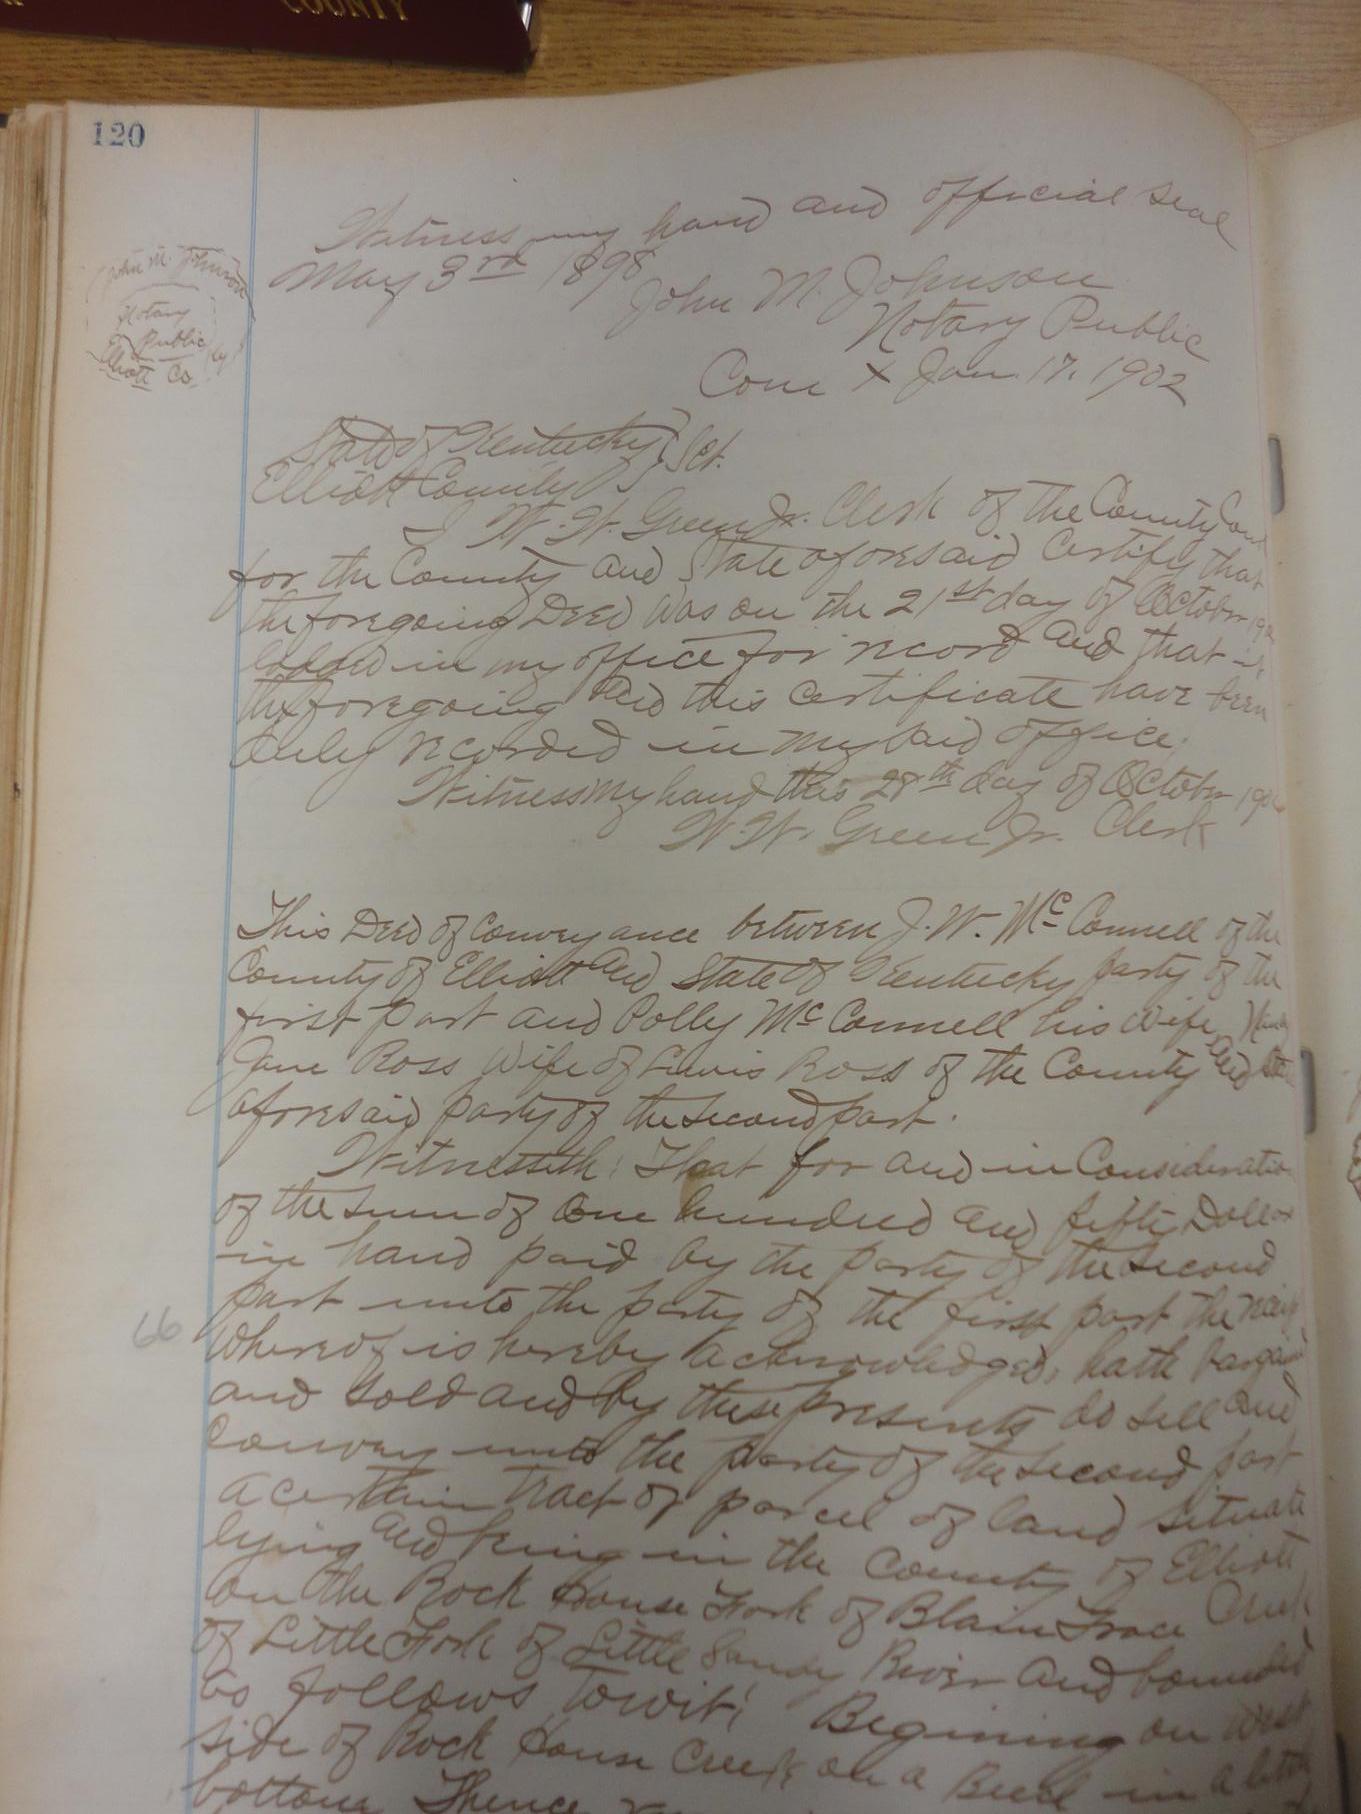 COUNTY
120
Witness my hand and official seal
May 3rd 1898
John M. Johnson
Notary Public
Com X Jan. 17. 1902
John M. Johnson
Notary
Public
Elliott Co Ky
State of Kentucky } Sct.
Elliott County }
I W. W. Green Jr. Clerk of the County Cout
for the County and State aforesaid Certify that
the foregoing Deed was on the 21st day of October
lodged in my office for record and that it
the foregoing and this certificate have been
duly recorded in my said office.
Witness my hand this 28th day of October
W. W. Green Jr. Clerk
This Deed of Conveyance between J. W. McConnell of the
County of Elliott and State of Kentucky party of the
first part and Polly McConnell his wife,
Jane Ross Wife of Lewis Ross of the County and State
aforesaid party of the second part.
Witnesseth: That for and in Consideration
of the sum of One hundred and fifty Dollars
in hand paid by the party of the second
part unto the party of the first part the
whereof is hereby acknowledged, hath bargained
and sold and by these presents do sell and
convey unto the party of the second part
66
a certain tract or parcel of land situate
lying and being in the County of Elliott
on the Rock House Fork of Blain Trace Creek
of Little Fork of Little Sandy River and bounded
as follows towit: Begining on West
side of Rock House Creek on a Beech in a little
bottom Thence